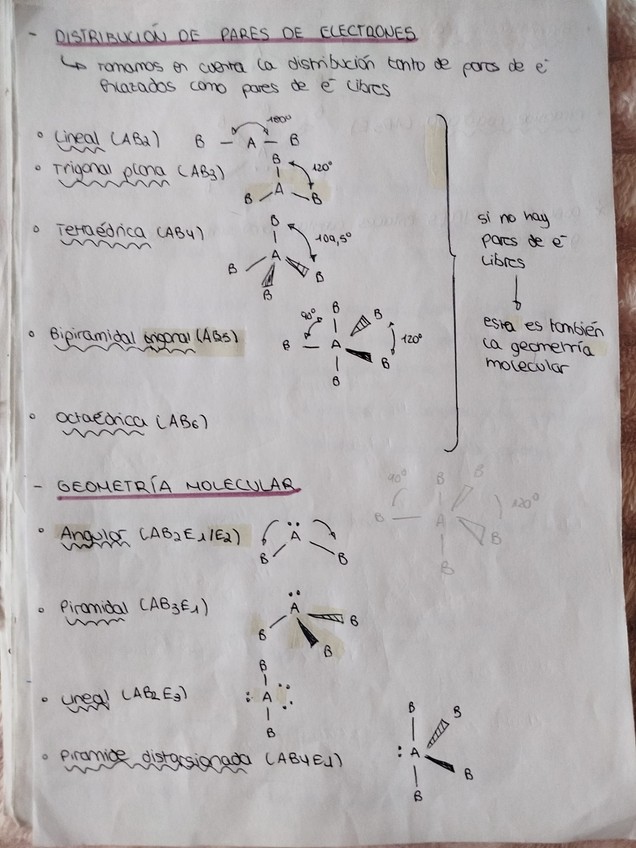 - DISTRIBUCIÓN DE PARES DE ELECTRONES
↳ Tomamos en cuenta la distribución tanto de pares de e⁻
enlazados como pares de e⁻ libres
° Lineal (AB2) B — A — B 180º
° Trigonal plana (AB3) B A B B 120º
° Tetaédrica (AB4) B A B B B 109,5º
° Bipiramidal trigonal (AB5) B B B A B B 90º 120º
° Octaédrica (AB6)
si no hay
pares de e⁻
libres
↓
esta es también
la geometría
molecular
- GEOMETRÍA MOLECULAR
90º B B B A B B 120º
° Angular (AB2E1/E2) A B B
° Piramidal (AB3E1) A B B B
° Lineal (AB2E3) B :A: B
° Piramide distorsionada (AB4E1) B B :A B B